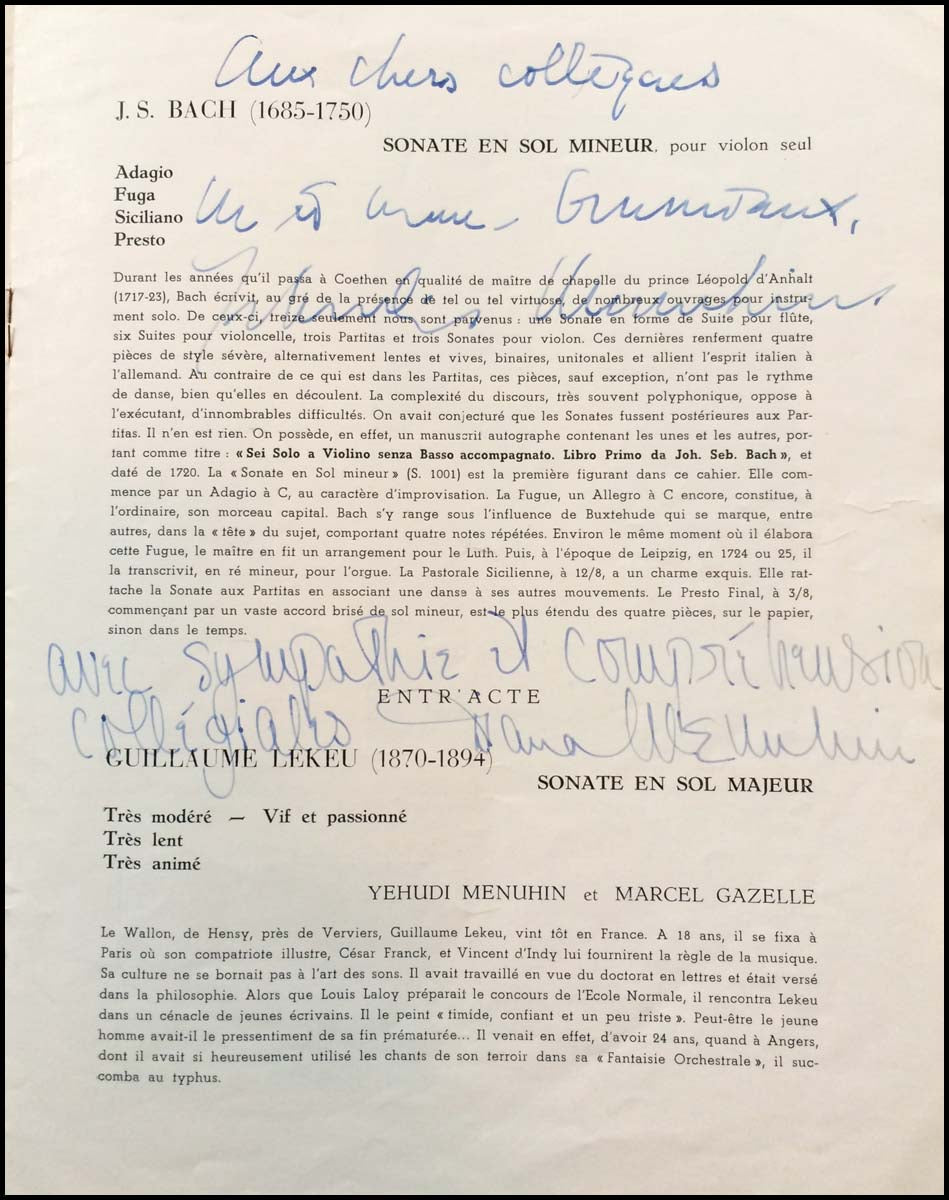 Aux chers collègues
J. S. BACH (1685-1750)
SONATE EN SOL MINEUR, pour violon seul
Adagio
Fuga
Siciliano
Presto
M et Mme Grumiaux,
Yehudi Menuhin
Durant les années qu'il passa à Coethen en qualité de maître de chapelle du prince Léopold d'Anhalt
(1717-23), Bach écrivit, au gré de la présence de tel ou tel virtuose, de nombreux ouvrages pour instru-
ment solo. De ceux-ci, treize seulement nous sont parvenus : une Sonate en forme de Suite pour flûte,
six Suites pour violoncelle, trois Partitas et trois Sonates pour violon. Ces dernières renferment quatre
pièces de style sévère, alternativement lentes et vives, binaires, unitonales et allient l'esprit italien à
l'allemand. Au contraire de ce qui est dans les Partitas, ces pièces, sauf exception, n'ont pas le rythme
de danse, bien qu'elles en découlent. La complexité du discours, très souvent polyphonique, oppose à
l'exécutant, d'innombrables difficultés. On avait conjecturé que les Sonates fussent postérieures aux Par-
titas. Il n'en est rien. On possède, en effet, un manuscrit autographe contenant les unes et les autres, por-
tant comme titre : « Sei Solo a Violino senza Basso accompagnato. Libro Primo da Joh. Seb. Bach », et
daté de 1720. La « Sonate en Sol mineur » (S. 1001) est la première figurant dans ce cahier. Elle com-
mence par un Adagio à C, au caractère d'improvisation. La Fugue, un Allegro à C encore, constitue, à
l'ordinaire, son morceau capital. Bach s'y range sous l'influence de Buxtehude qui se marque, entre
autres, dans la « tête » du sujet, comportant quatre notes répétées. Environ le même moment où il élabora
cette Fugue, le maître en fit un arrangement pour le Luth. Puis, à l'époque de Leipzig, en 1724 ou 25, il
la transcrivit, en ré mineur, pour l'orgue. La Pastorale Sicilienne, à 12/8, a un charme exquis. Elle rat-
tache la Sonate aux Partitas en associant une danse à ses autres mouvements. Le Presto Final, à 3/8,
commençant par un vaste accord brisé de sol mineur, est le plus étendu des quatre pièces, sur le papier,
sinon dans le temps.
avec sympathie et compréhension
ENTR'ACTE
collégiales Diana Menuhin
GUILLAUME LEKEU (1870-1894)
SONATE EN SOL MAJEUR
Très modéré — Vif et passionné
Très lent
Très animé
YEHUDI MENUHIN et MARCEL GAZELLE
Le Wallon, de Hensy, près de Verviers, Guillaume Lekeu, vint tôt en France. A 18 ans, il se fixa à
Paris où son compatriote illustre, César Franck, et Vincent d'Indy lui fournirent la règle de la musique.
Sa culture ne se bornait pas à l'art des sons. Il avait travaillé en vue du doctorat en lettres et était versé
dans la philosophie. Alors que Louis Laloy préparait le concours de l'Ecole Normale, il rencontra Lekeu
dans un cénacle de jeunes écrivains. Il le peint « timide, confiant et un peu triste ». Peut-être le jeune
homme avait-il le pressentiment de sa fin prématurée... Il venait en effet, d'avoir 24 ans, quand à Angers,
dont il avait si heureusement utilisé les chants de son terroir dans sa « Fantaisie Orchestrale », il suc-
comba au typhus.